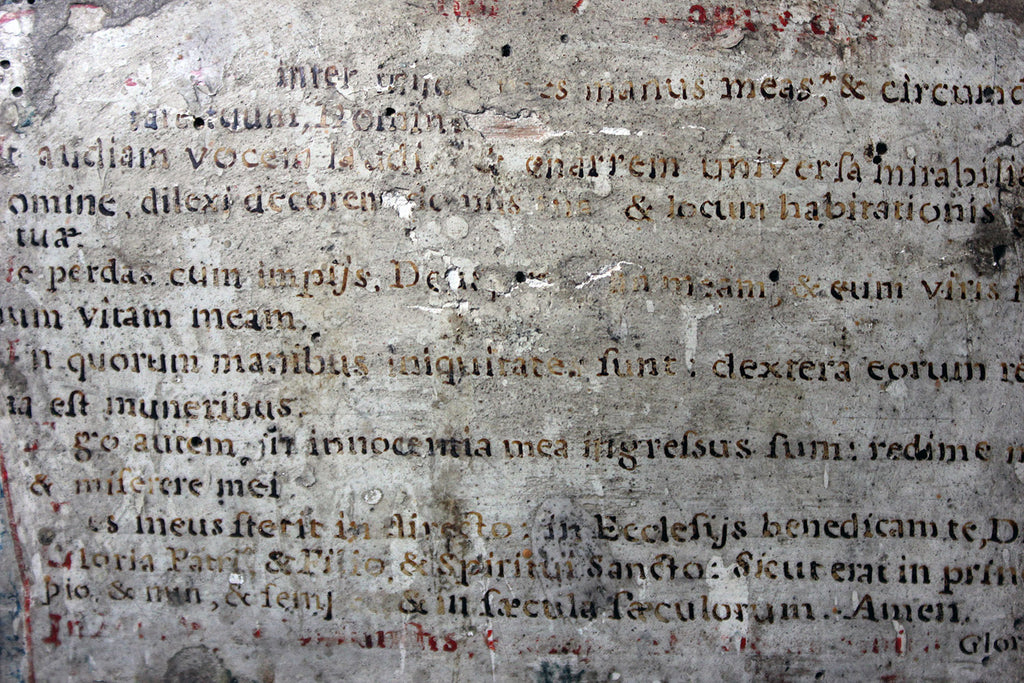 inter manus meas, & circumd
Domin
audiam vocem laudi & enarrem universa mirabilia
omine, dilexi decorem & locum habitationis
tuæ.
e perdas cum impijs, Deus, meam, & cum viris
um vitam meam.
n quorum manibus iniquitates sunt: dextera eorum re
ta est muneribus.
go autem in innocentia mea ingressus sum: redime m
& miserere mei
es meus stetit in directo: in Ecclesijs benedicam te, D
Gloria Patri & Filio, & Spiritui Sancto: Sicut erat in prin
pio, & nun, & semp & in sæcula sæculorum. Amen.
Glor